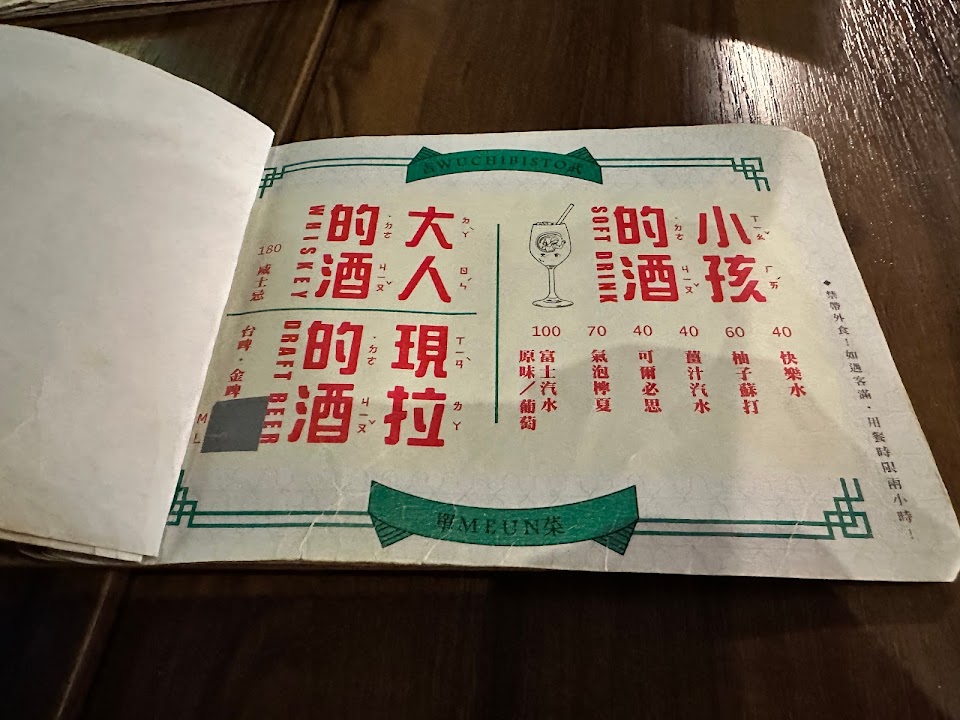 WUCHIBISTO
小孩
ㄒㄧㄠˇ ㄏㄞˊ
的酒
˙ㄉㄜ ㄐㄧㄡˇ
SOFT DRINK
40 快樂水
60 柚子蘇打
40 薑汁汽水
40 可爾必思
70 氣泡檸夏
100 富士汽水
原味/葡萄
大人
ㄉㄚˋ ㄖㄣˊ
的酒
˙ㄉㄜ ㄐㄧㄡˇ
WHISKEY
180 威士忌
現拉
ㄒㄧㄢˋ ㄌㄚ
的酒
˙ㄉㄜ ㄐㄧㄡˇ
DRAFT BEER
台啤・金啤
M
L
單MEUN菜
◆禁帶外食!如遇客滿・用餐時限兩小時!